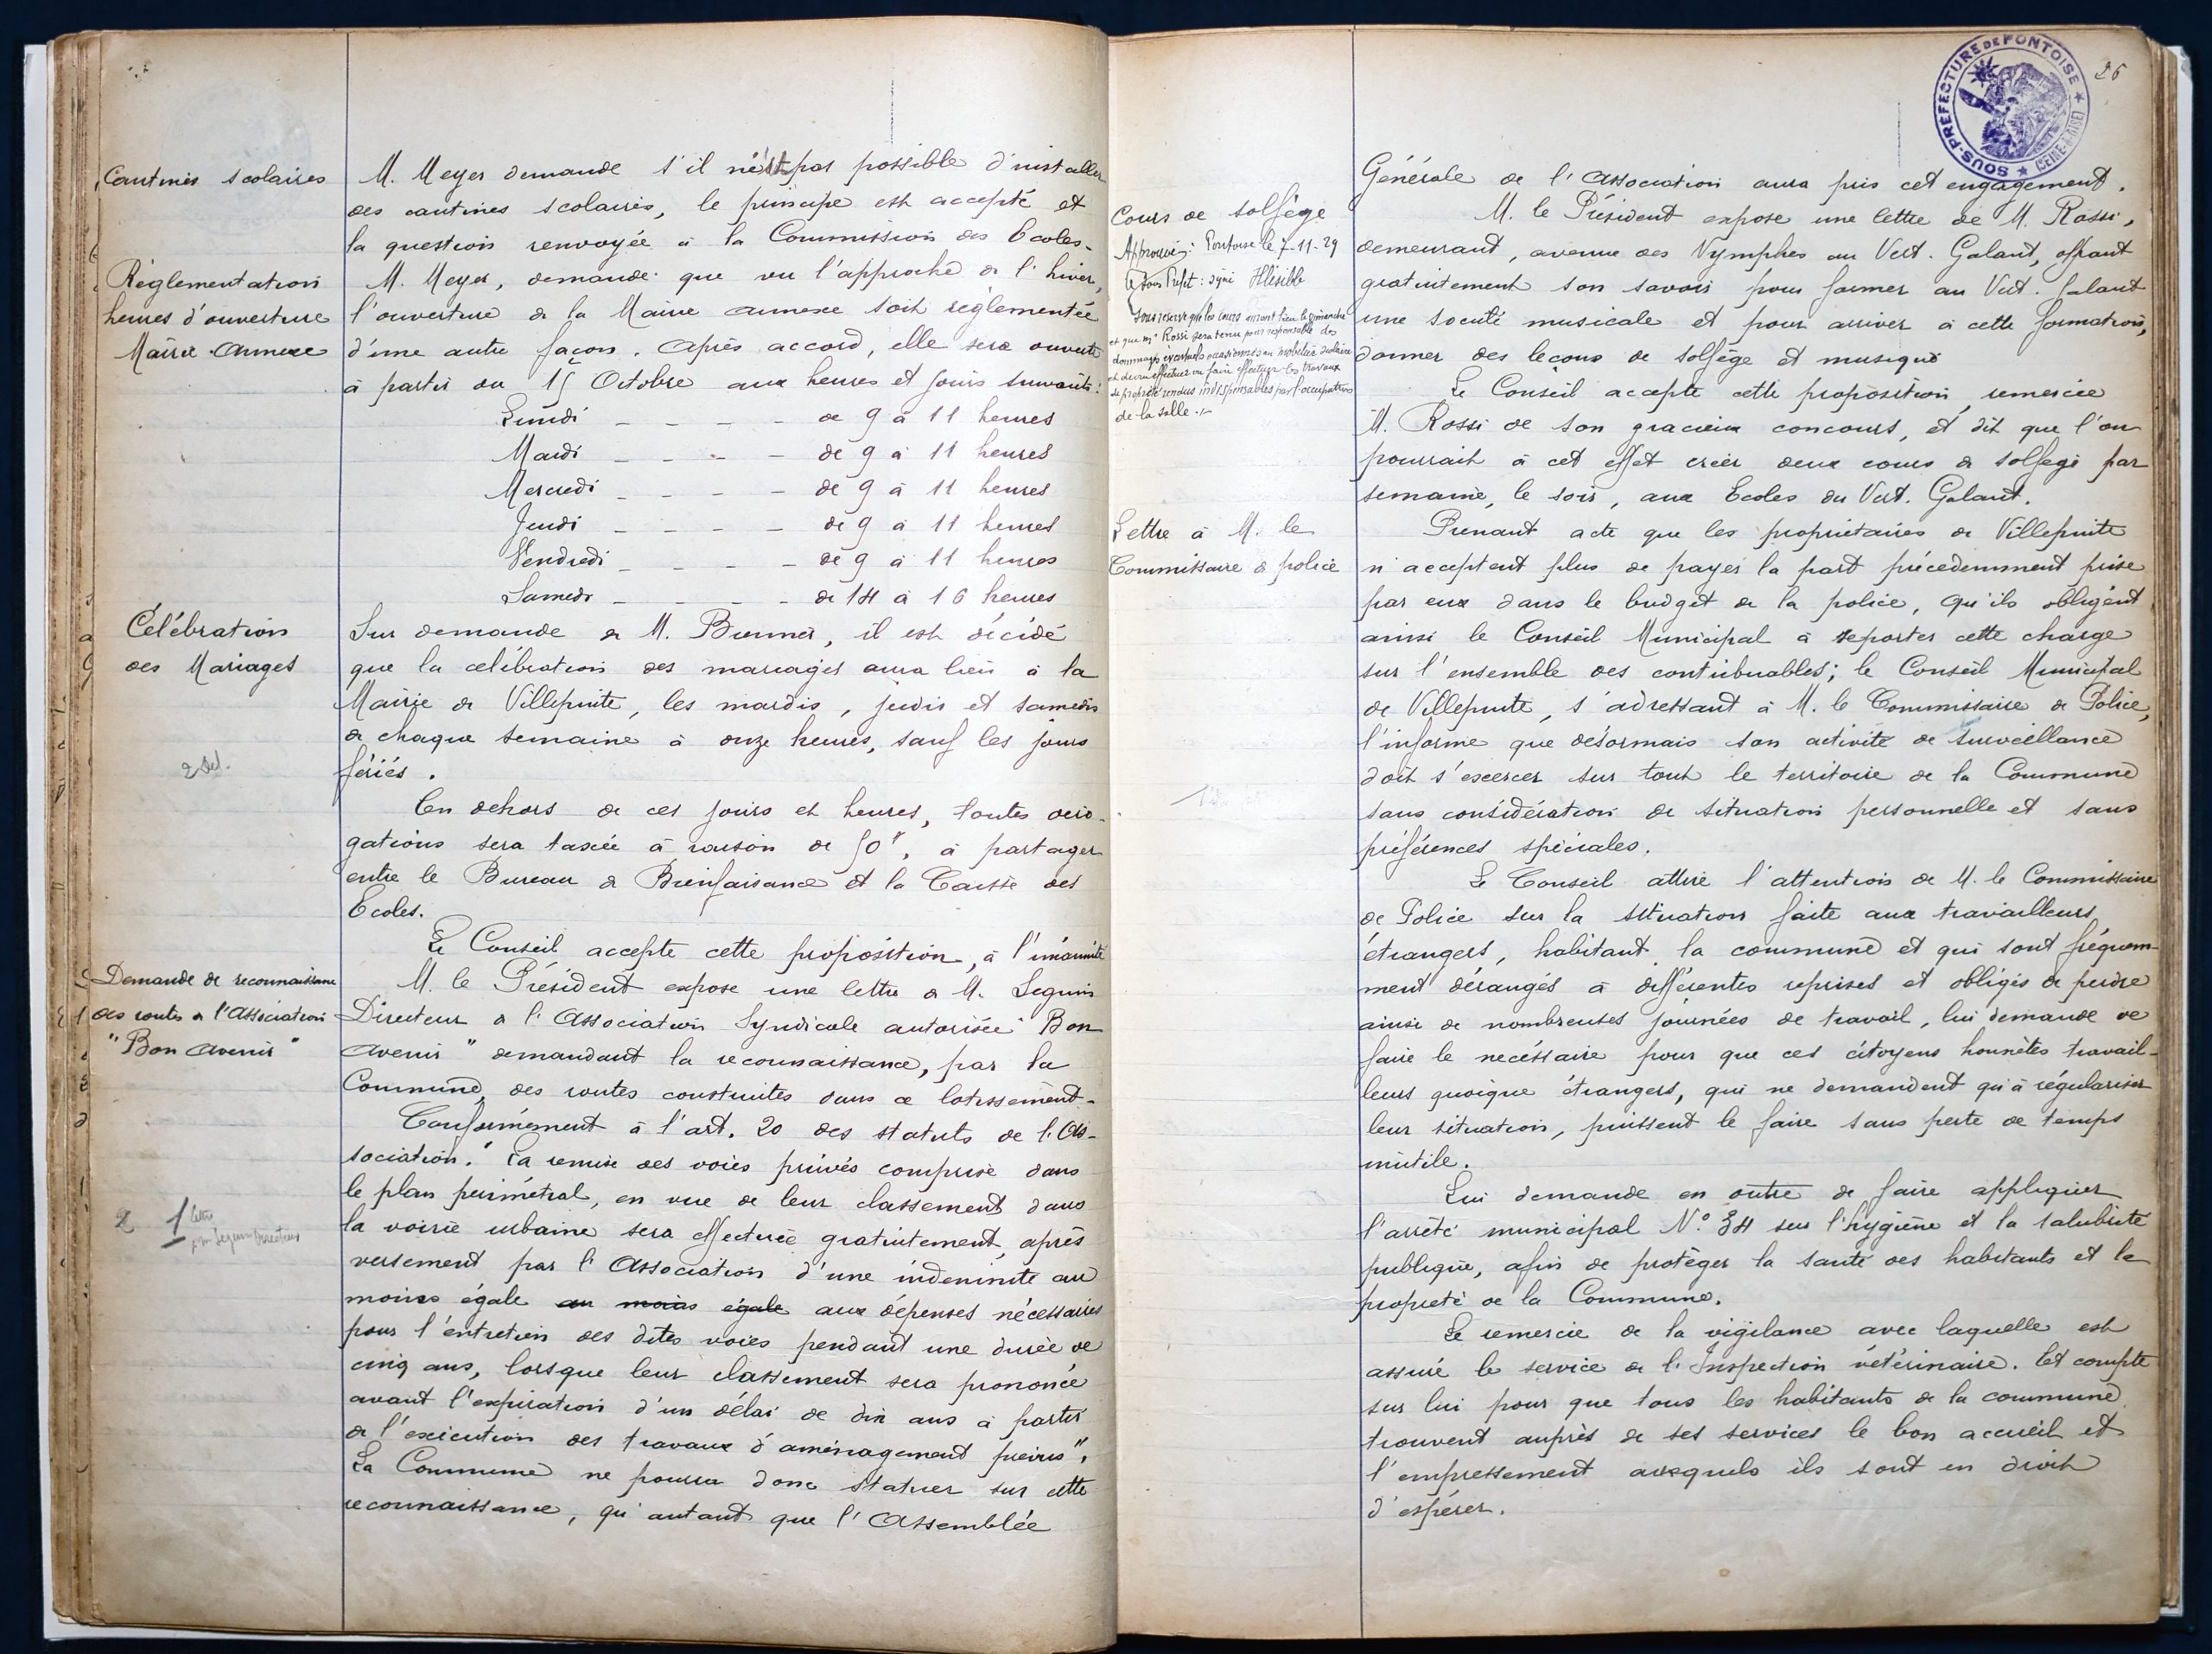 Cantines scolaires
M. Meyer demande s'il n'est pas possible d'installer
des cantines scolaires, le principe est accepté et
la question renvoyée à la Commission des Ecoles.
Règlementation
heures d'ouverture
Mairie Annexe
M. Meyer, demande que vu l'approche de l'hiver,
l'ouverture de la Mairie annexe soit règlementée
d'une autre façon. Après accord, elle sera ouverte
à partir du 15 Octobre aux heures et jours suivants :
Lundi _ _ _ _ de 9 à 11 heures
Mardi _ _ _ _ de 9 à 11 heures
Mercredi _ _ _ _ de 9 à 11 heures
Jeudi _ _ _ _ de 9 à 11 heures
Vendredi _ _ _ _ de 9 à 11 heures
Samedi _ _ _ _ de 14 à 16 heures
Célébration
des Mariages
2 Del.
Sur demande de M. Brunner, il est décidé
que la célébration des mariages aura lieu à la
Mairie de Villepinte, les mardis, jeudis et samedis
de chaque semaine à onze heures, sauf les jours
fériés.
En dehors de ces jours et heures, toutes déro-
gations sera taxée à raison de 50f, à partager
entre le Bureau de Bienfaisance et la Caisse des
Ecoles.
Le Conseil accepte cette proposition, à l'unanimité
Demande de reconnaissance
des routes de l'Association
"Bon Avenir"
M. le Président expose une lettre de M. Seguin
Directeur de l'Association Syndicale autorisée "Bon
Avenir" demandant la reconnaissance, par la
Commune, des routes construites dans ce lotissement.
Conformément à l'art. 20 des statuts de l'As-
sociation. "La remise des voies privés comprise dans
le plan perimétral, en vue de leur classement dans
la voirie urbaine sera effectuée gratuitement, après
2 1 lettre
pour Seguin Directeur
versement par l'Association d'une indemnite au
moins égale au moins égale aux dépenses nécessaires
pour l'entretien des dites voies pendant une durée de
cinq ans, lorsque leur classement sera prononcée
avant l'expiration d'un délai de dix ans à partir
de l'exécution des travaux d'aménagement prévus".
La Commune ne pourra donc statuer sur cette
reconnaissance, qu'autant que l'Assemblée
SOUS-PREFECTURE DE PONTOISE
SEINE-ET-OISE
26
Générale de l'Association aura pris cet engagement.
Cours de solfège
Approuvé : Pontoise le 7-11-29
Le Sous Préfet : signé Illisible
Sous reserve que les cours auront lieu le dimanche
et que Mr Rossi sera tenu pour responsable des
dommages éventuels occasionnés au mobilier scolaire
et devra effectuer ou faire effectuer les travaux
de propreté rendus indispensables par l'occupation
de la salle ./.
M. le Président expose une lettre de M. Rossi,
demeurant, avenue des Nymphes au Vert. Galant, offrant
gratuitement son savoir pour former au Vert. Galant
une société musicale et pour arriver à cette formation,
donner des leçons de solfège et musique
Le Conseil accepte cette proposition, remercie
M. Rossi de son gracieux concours, et dit que l'on
pourrait à cet effet créer deux cours de solfège par
semaine, le soir, aux Ecoles du Vert. Galant.
Lettre à M. le
Commissaire de police
Prenant acte que les propriétaires de Villepinte
n'acceptent plus de payer la part précédemment prise
par eux dans le budget de la police, qu'ils obligent
ainsi le Conseil Municipal à reporter cette charge
sur l'ensemble des contribuables; le Conseil Municipal
de Villepinte, s'adressant à M. le Commissaire de Police,
l'informe que désormais son activité de surveillance
doit s'exercer sur tout le territoire de la Commune
sans considération de situation personnelle et sans
préférences spéciales.
Le Conseil attire l'attention de M. le Commissaire
de Police sur la situation faite aux travailleurs
étrangers, habitant la commune et qui sont fréquem-
ment dérangés à différentes reprises et obligés de perdre
ainsi de nombreuses journées de travail, lui demande de
faire le necéssaire pour que ces citoyens honnêtes travail-
leurs quoique étrangers, qui ne demandent qu'à régulariser
leur situation, puissent le faire sans perte de temps
inutile.
Lui demande en outre de faire appliquer
l'arrêté municipal N° 34 sur l'hygiène et la salubrité
publique, afin de protéger la santé des habitants et la
propreté de la Commune.
Le remercie de la vigilance avec laquelle est
assuré le service de l'Inspection vétérinaire. Et compte
sur lui pour que tous les habitants de la commune
trouvent auprès de ses services le bon accueil et
l'empressement auxquels ils sont en droit
d'espérer.